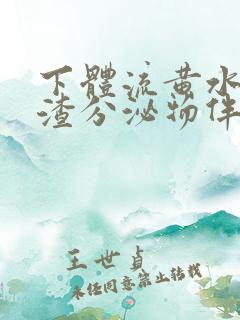 下體流黄水
渣分泌物伴
王世貞
未经同意禁止转载